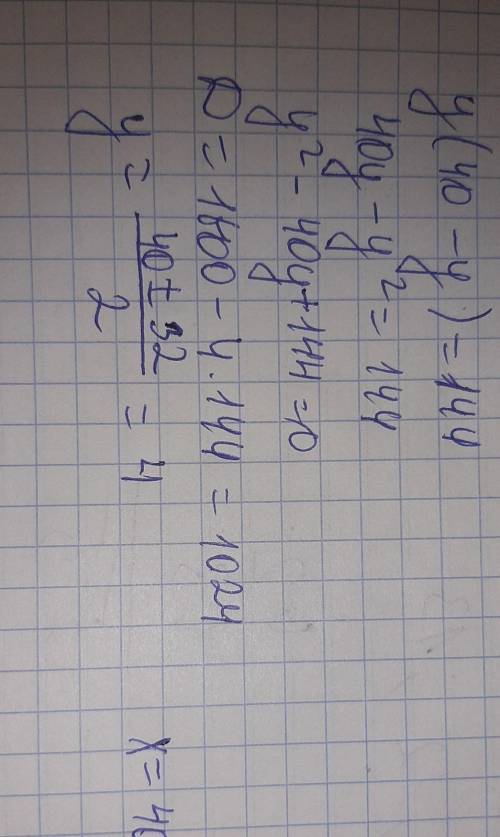 y(40 - y) = 144
40y - y² = 144
y² - 40y + 144 = 0
D = 1600 - 4·144 = 1024
y = (40 ± 32)/2 = 4
x = 40